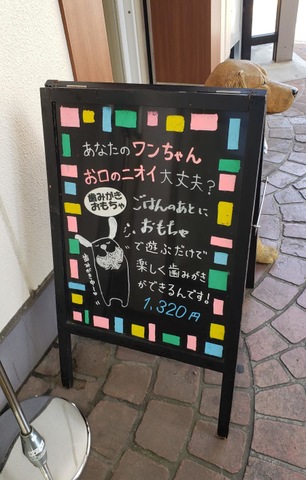 あなたのワンちゃん
お口のニオイ大丈夫?
歯みがき
おもちゃ
ごはんのあとに
おもちゃ
で遊ぶだけで
楽しく歯みがき
ができるんです!
1,320円